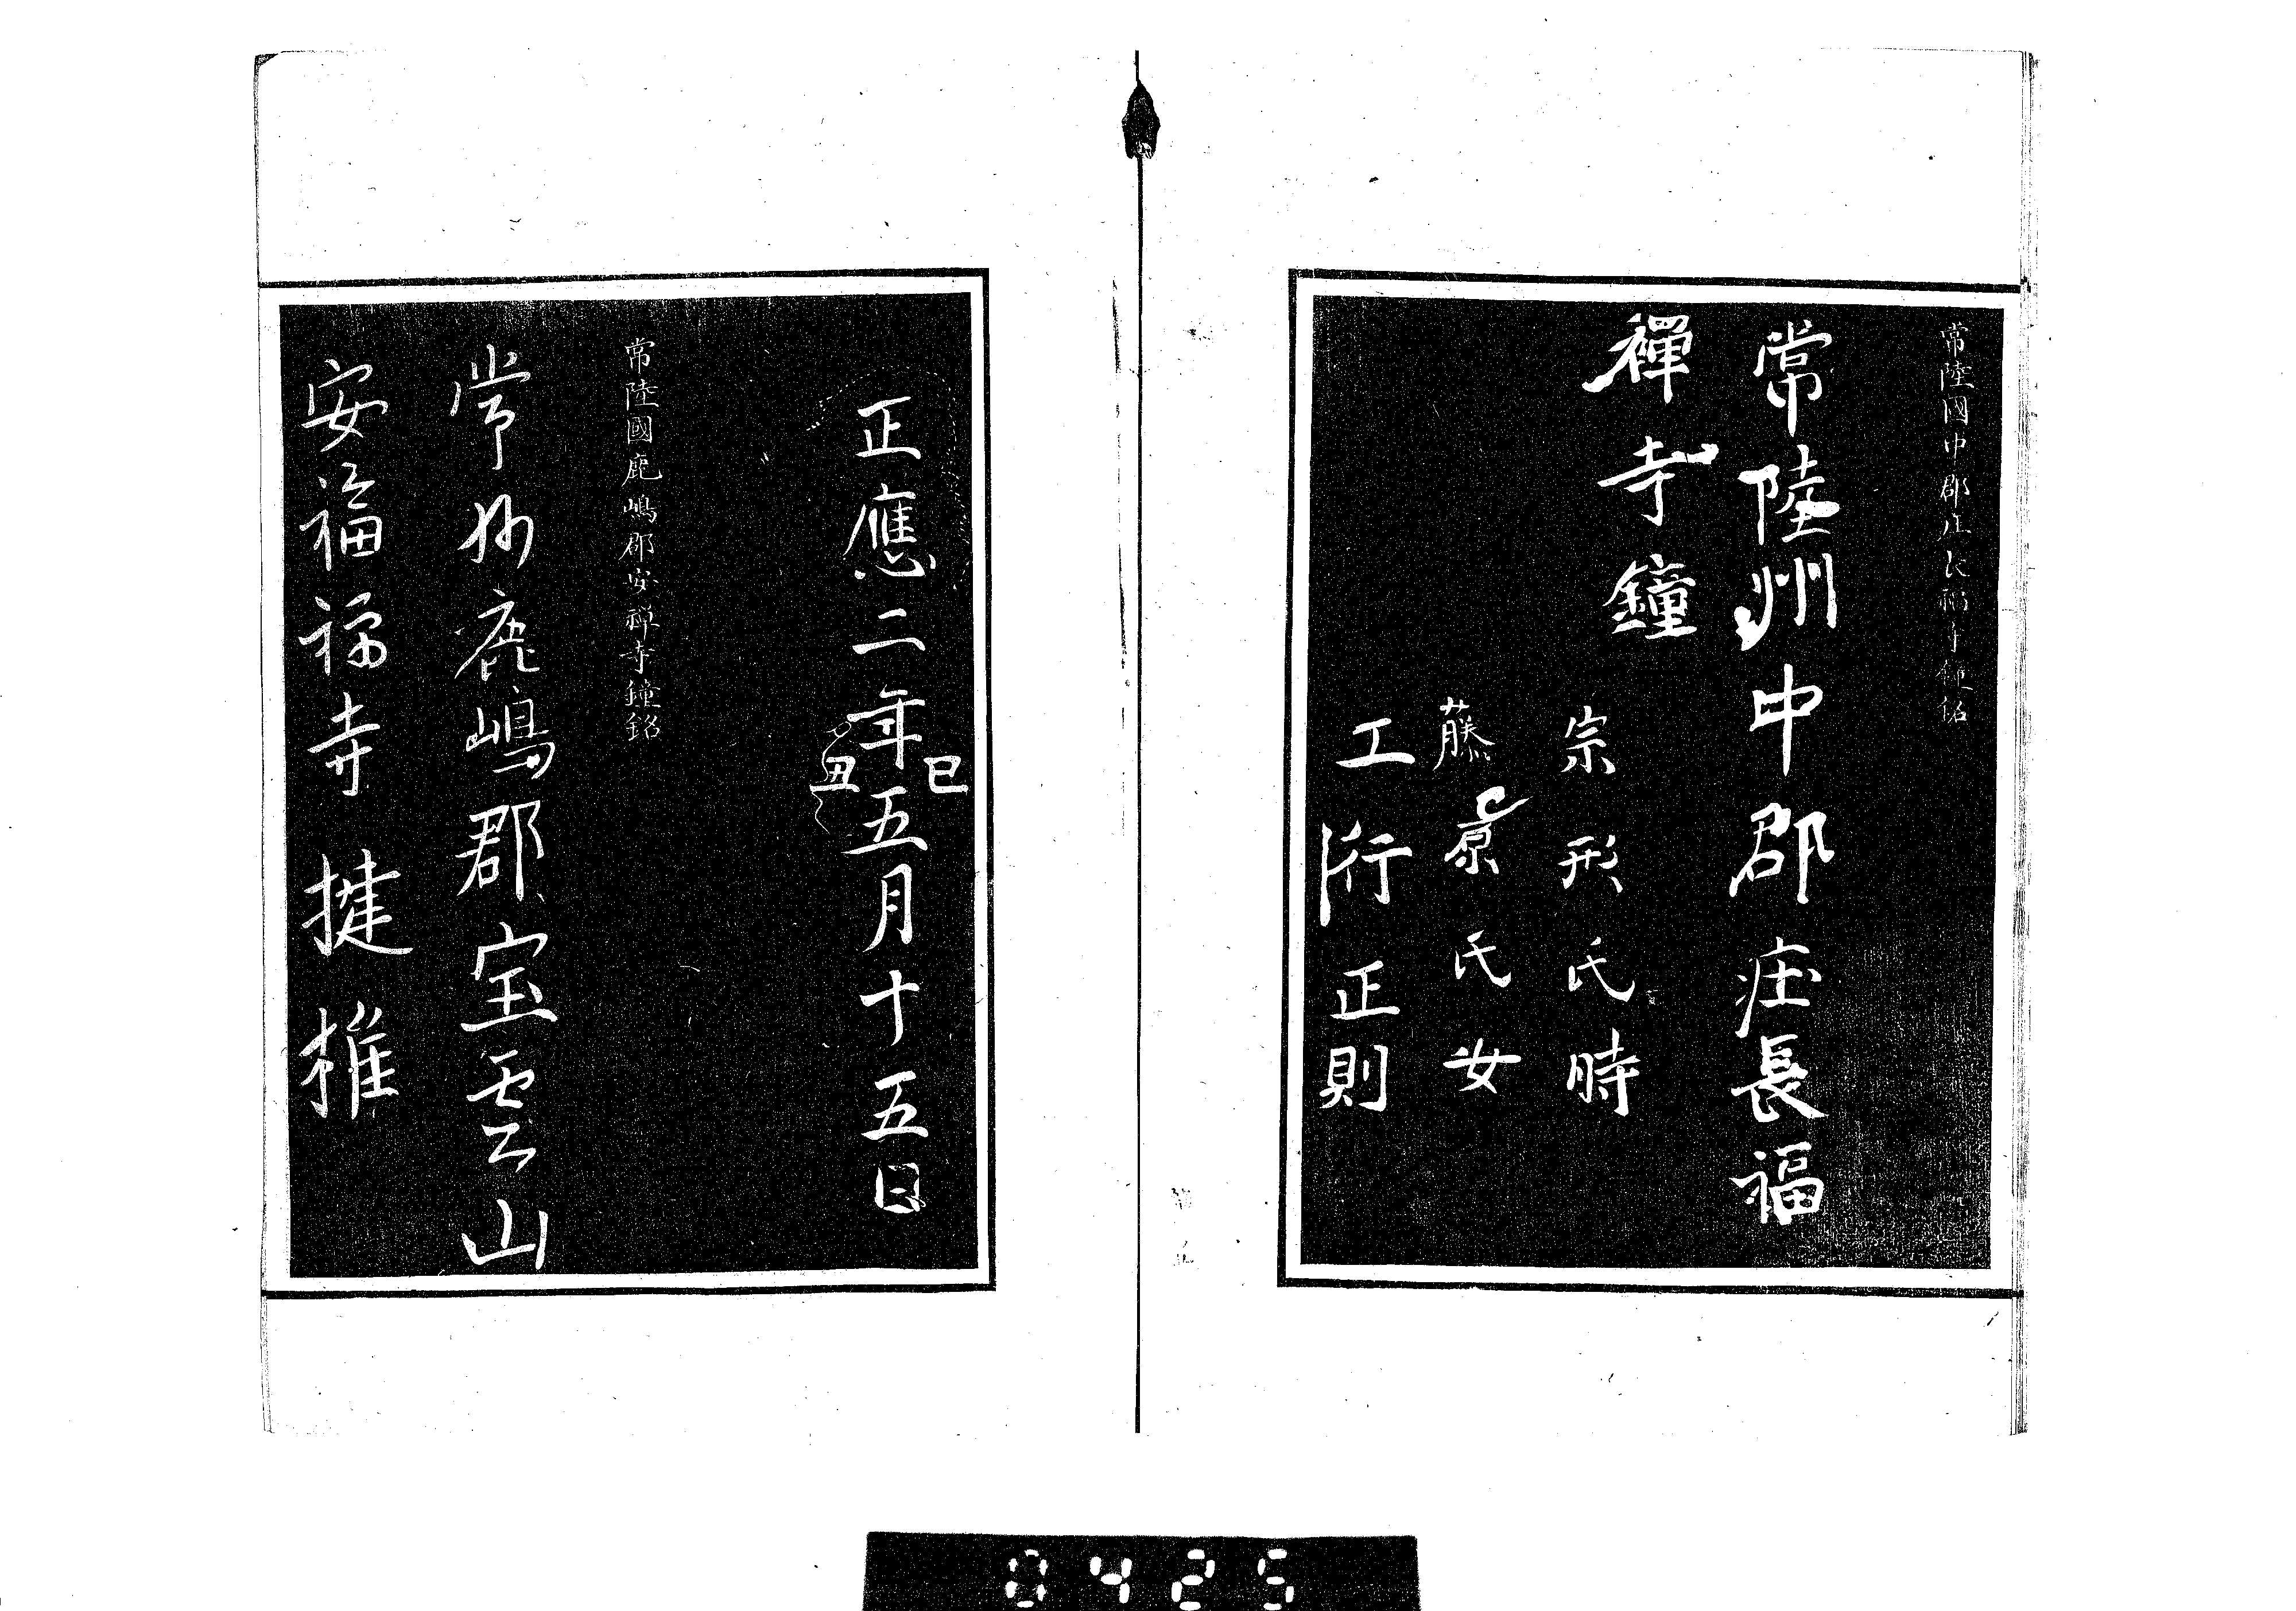 常陸國中郡庄長福寺鐘銘
常陸州中郡庄長福
禪寺鐘
宗形氏時
藤原氏女
工行正則
正應二年己丑五月十五日
常陸國鹿嶋郡安禅寺鐘銘
常州鹿嶋郡宝雲山
安福禅寺揵椎
0425